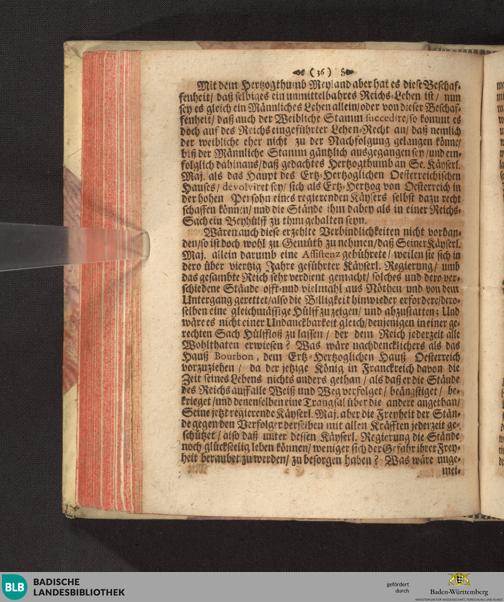 (36)
Mit dem Hertzogthumb Meyland aber hat es diese Beschaf-
fenheit/ daß selbiges ein unmittelbahres Reichs-Lehen ist/ nun
sey es gleich ein Männliches Lehen allein/ oder von dieser Beschaf-
fenheit/ daß auch der Weibliche Stamm succedire/ so kommt es
doch auf des Reichs eingeführter Lehen-Recht an/ daß nemlich
der weibliche eher nicht zu der Nachfolgung gelangen könne/
biß der Männliche Stamm gäntzlich ausgegangen sey/ und ein-
folglich dahinaus/ daß gedachtes Hertzogthumb an Se. Käyserl.
Maj. als das Haupt des Ertz-Hertzoglichen Oesterreichischen
Hauses/ devolviret sey/ sich als Ertz-Hertzog von Oesterreich in
der hohen Persohn eines regierenden Käysers selbst dazu recht
schaffen können/ und die Stände ihm dabey als in einer Reichs-
Sach ein Beyhülff zu thun gehalten seyn.
Wären auch diese erzehlte Verbindlichkeiten nicht vorhan-
den/ so ist doch wohl zu Gemüth zu nehmen/ daß Seiner Käyserl.
Maj. allein darumb eine Assistenz gebührete/ weilen sie sich in
dero über viertzig Jahre geführter Käyserl. Regierung/ umb
das gesambte Reich sehr verdient gemacht/ solches und dero ver-
schiedene Stände offt- und vielmahl aus Nöthen und von dem
Untergang gerettet/ also die Billigkeit hinwieder erfordere/ dero-
selben eine gleichmässige Hülff zu zeigen/ und abzustatten: Und
wäre es nicht einer Undanckbarkeit gleich/ denjenigen in einer ge-
rechten Sach Hülffloß zu lassen/ der dem Reich jederzeit alle
Wohlthaten erwiesen? Was wäre nachdencklichers als das
Hauß Bourbon, dem Ertz-Hertzoglichen Hauß Oesterreich
vorzuziehen/ da der jetzige König in Franckreich davon die
Zeit seines Lebens nichts anders gethan/ als daß er die Stände
des Reichs auff alle Weiß und Weg verfolget/ beängstiget/ be-
krieget/ und denenselben eine Trangsal über die andere angethan/
Seine jetzt regierende Käyserl. Maj. aber die Freyheit der Stän-
de gegen den Verfolger derselben mit allen Kräfften jederzeit ge-
schützet/ also daß unter dessen Käyserl. Regierung die Stände
noch glückseelig leben können/ weniger sich der Gefahr ihrer Frey-
heit beraubet zu werden/ zu besorgen haben? Was wäre unge-
mei-
BLB
BADISCHE
LANDESBIBLIOTHEK
gefördert
durch
Baden-Württemberg